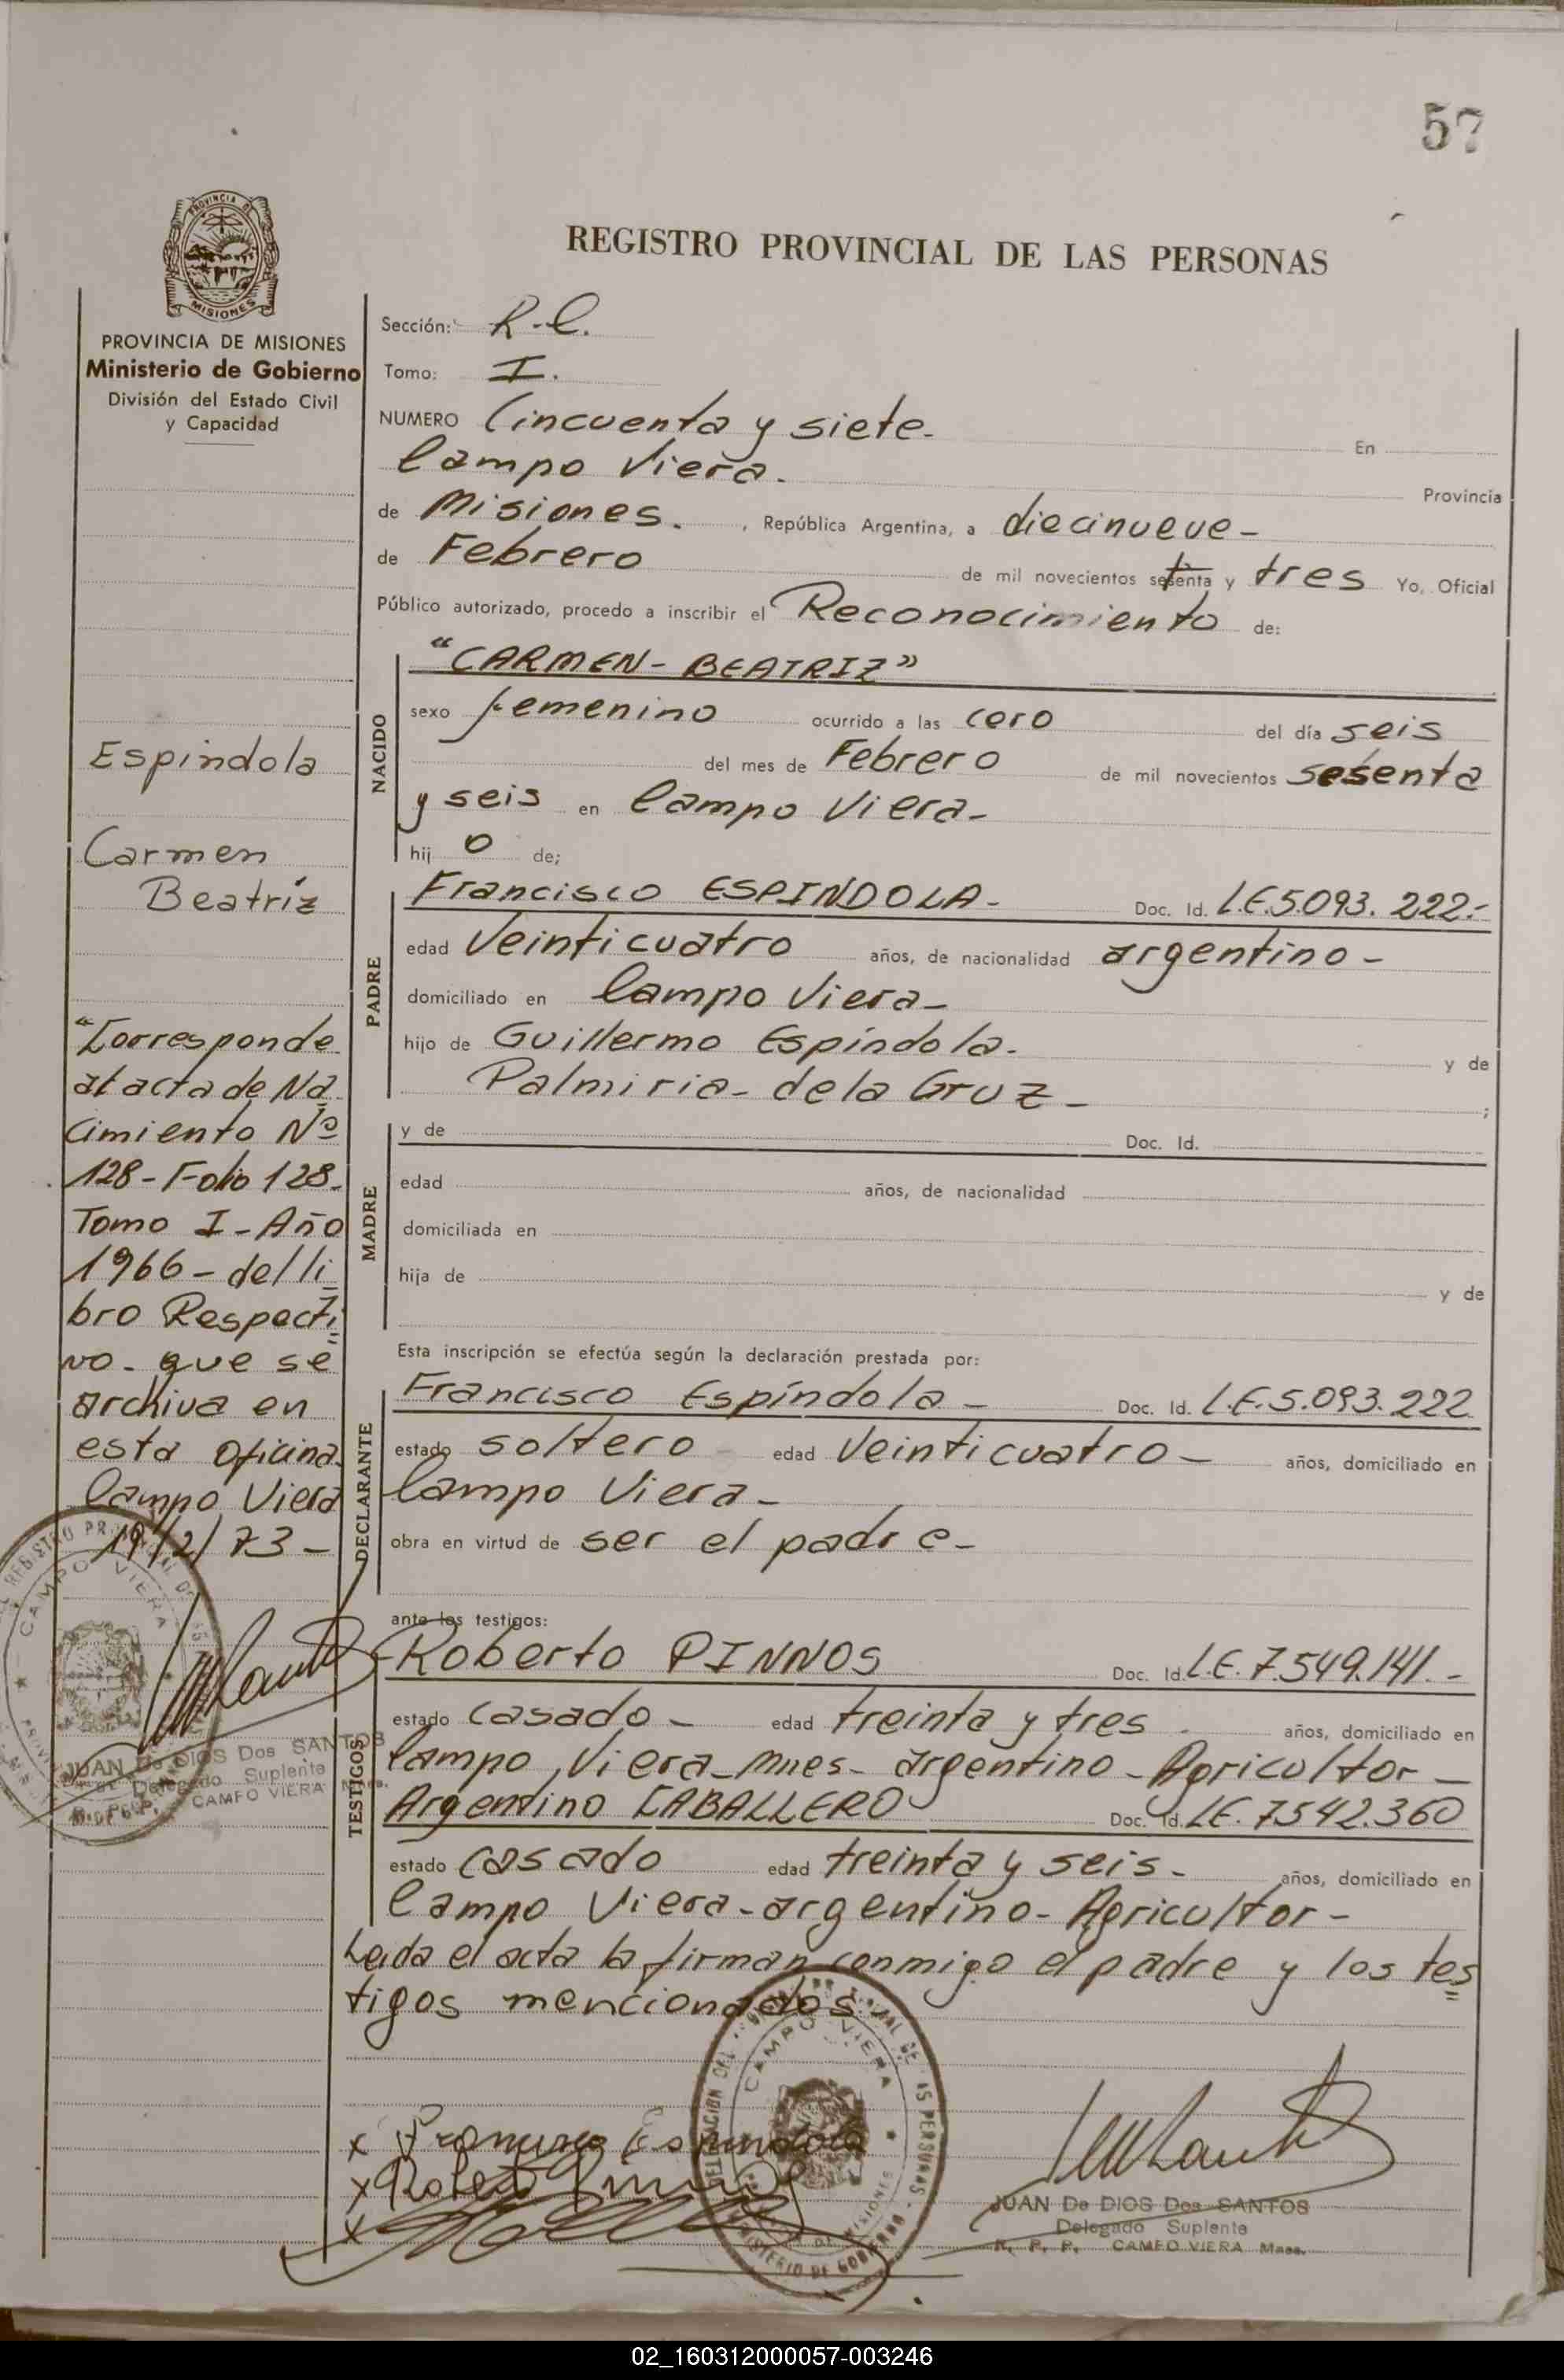 57
REGISTRO PROVINCIAL DE LAS PERSONAS
PROVINCIA DE MISIONES
Ministerio de Gobierno
División del Estado Civil
y Capacidad
Espindola
Carmen
Beatríz
"Corresponde
al acta de Na
cimiento Nº
128-Folio 128-
Tomo I-Año
1966-del li
bro Respecti
vo- que se
archiva en
esta oficina.
Campo Viera
19/2/73-
JUAN De DIOS Dos SANTOS
Delegado Suplente
CAMPO VIERA Mnes.
Sección: R.C.
Tomo: I.
NUMERO Cincuenta y siete- En
Campo Viera. Provincia
de Misiones. , República Argentina, a diecinueve-
de Febrero de mil novecientos setenta y tres Yo, Oficial
Público autorizado, procedo a inscribir el Reconocimiento de:
NACIDO
"CARMEN-BEATRIZ"
sexo femenino ocurrido a las cero del día seis
del mes de Febrero de mil novecientos sesenta
y seis en Campo Viera-
hij o de;
PADRE
Francisco ESPINDOLA- Doc. Id. L.E.5.093.222.-
edad Veinticuatro años, de nacionalidad argentino-
domiciliado en Campo Viera-
hijo de Guillermo Espíndola- y de
Palmiria- de la Cruz- ;
MADRE
y de Doc. Id.
edad años, de nacionalidad
domiciliada en
hija de y de
Esta inscripción se efectúa según la declaración prestada por:
DECLARANTE
Francisco Espíndola- Doc. Id. L.E.5.093.222
estado soltero edad Veinticuatro- años, domiciliado en
Campo Viera-
obra en virtud de ser el padre-
ante los testigos:
TESTIGOS
Roberto PINNOS Doc. Id. L.E. 7.549.141.-
estado casado- edad treinta y tres años, domiciliado en
Campo Viera-Mnes- argentino-Agricultor-
Argentino CABALLERO Doc. Id. LE. 7.542.360
estado casado edad treinta y seis- años, domiciliado en
Campo Viera-argentino-Agricultor-
Leida el acta la firman conmigo el padre y los tes
tigos mencionados
x Francisco Espindola
x Roberto
x
CAMPO VIERA
JUAN De DIOS Dos SANTOS
Delegado Suplente
R. P. P. CAMPO VIERA Mnes.
02_160312000057-003246